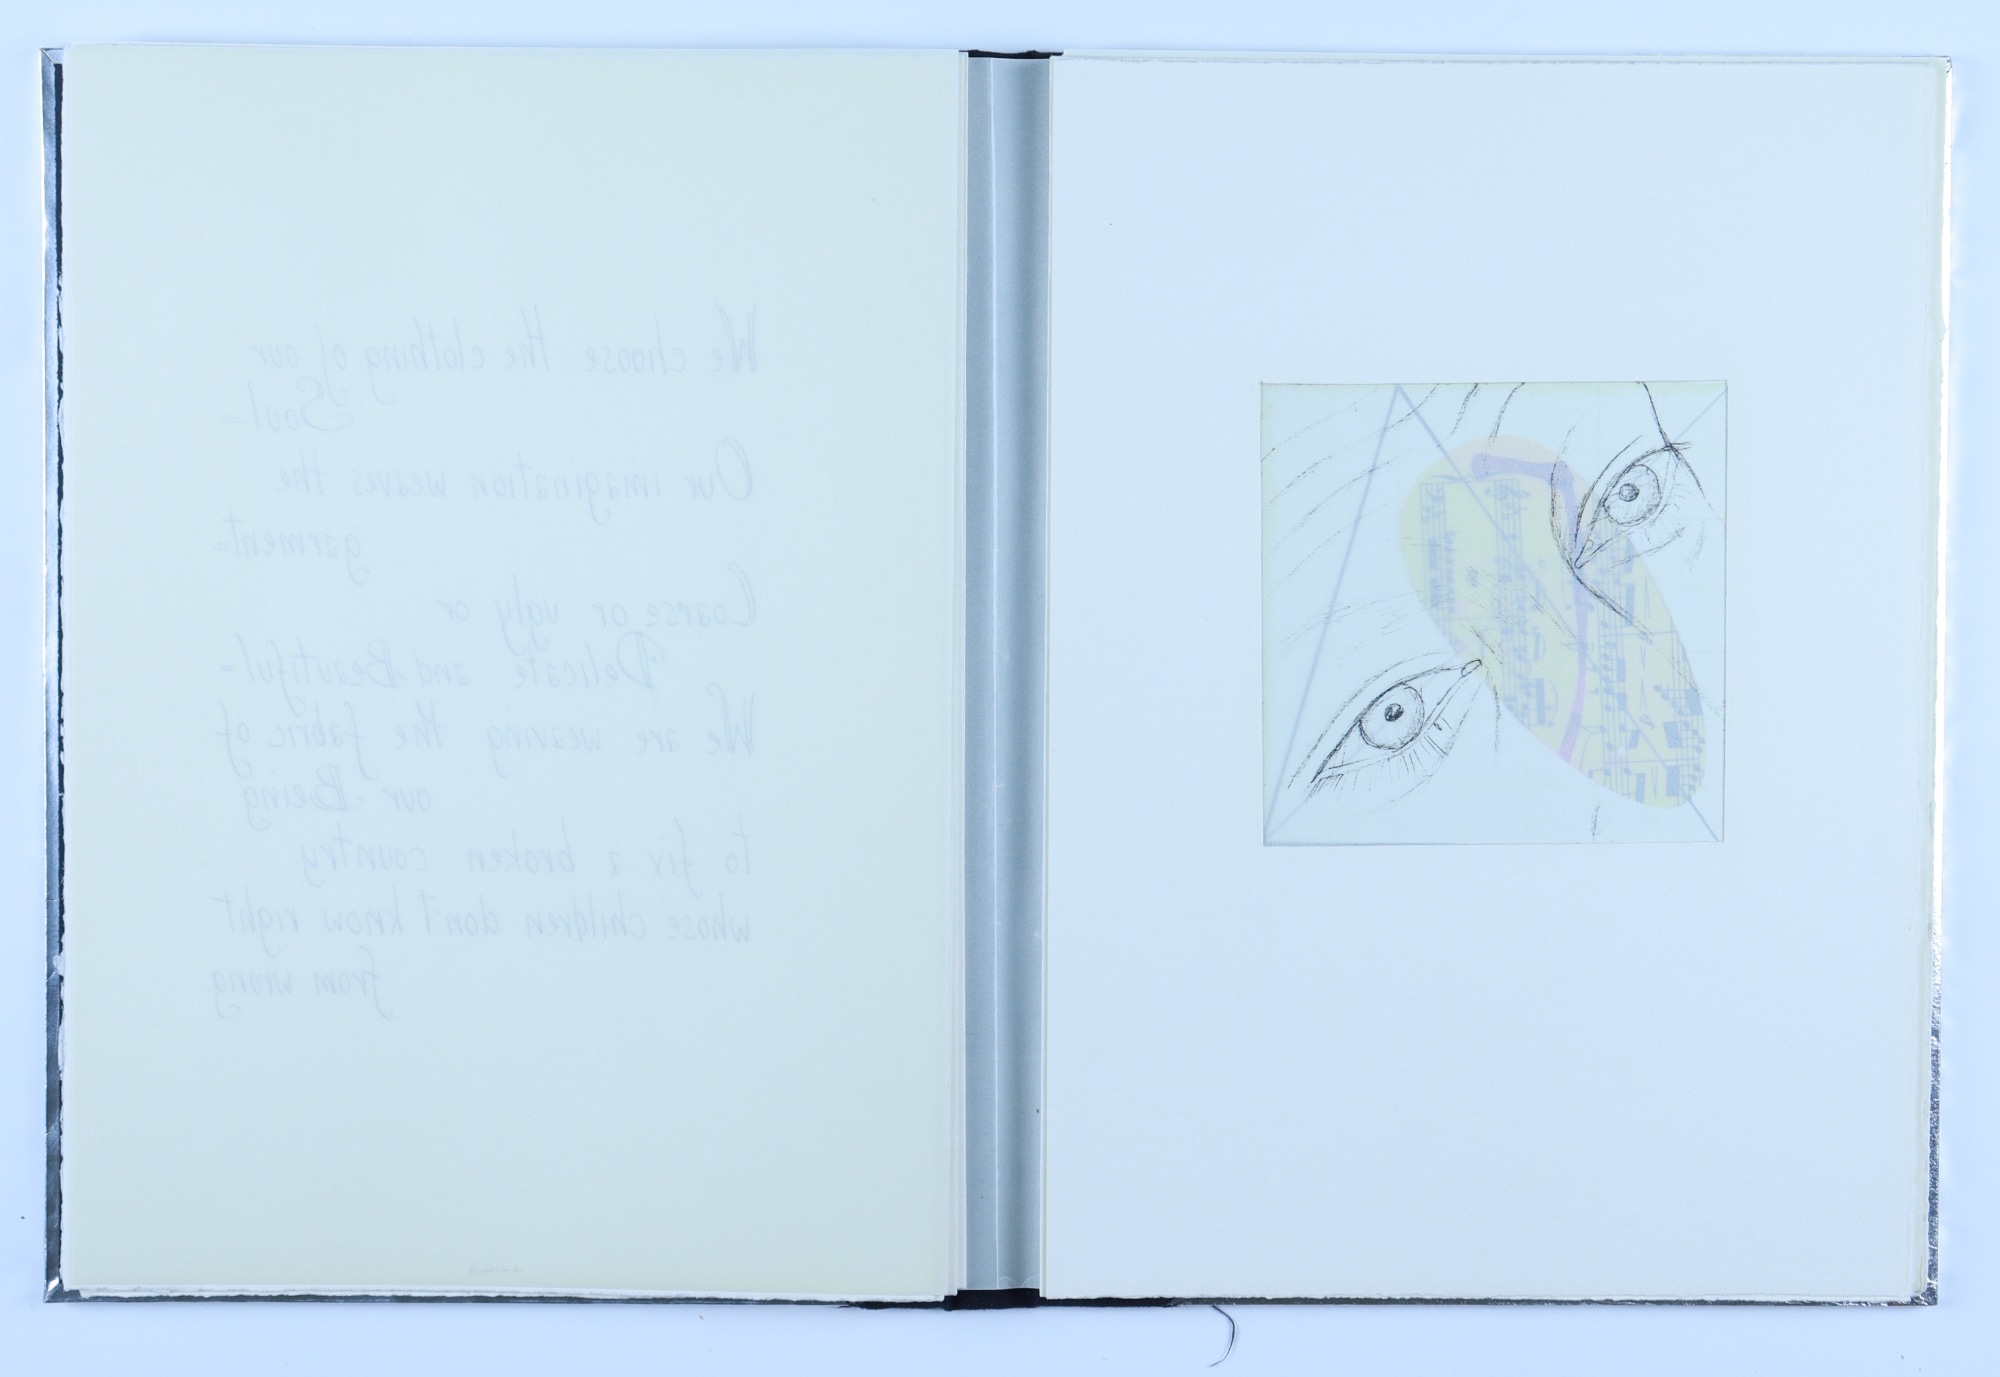 We choose the clothing of our
Soul-
Our imagination weaves the
garment-
Coarse or ugly or
Delicate and Beautiful-
We are weaving the fabric of
our Being
to fix a broken country
whose children don't know right
from wrong.